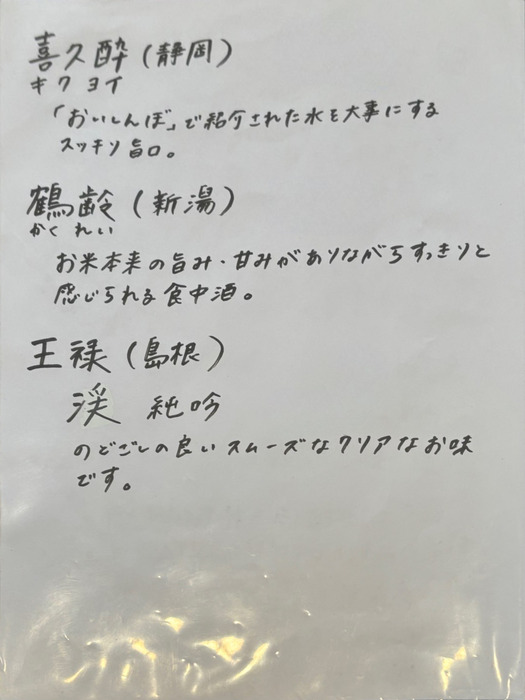 喜久酔(静岡)
キク ヨイ
「おいしんぼ」で紹介された水を大事にする
スッキリ旨口。
鶴齢(新潟)
かく れい
お米本来の旨み・甘みがありながらすっきりと
感じられる食中酒。
王禄(島根)
渓 純吟
のどごしの良いスムーズなクリアなお味
です。